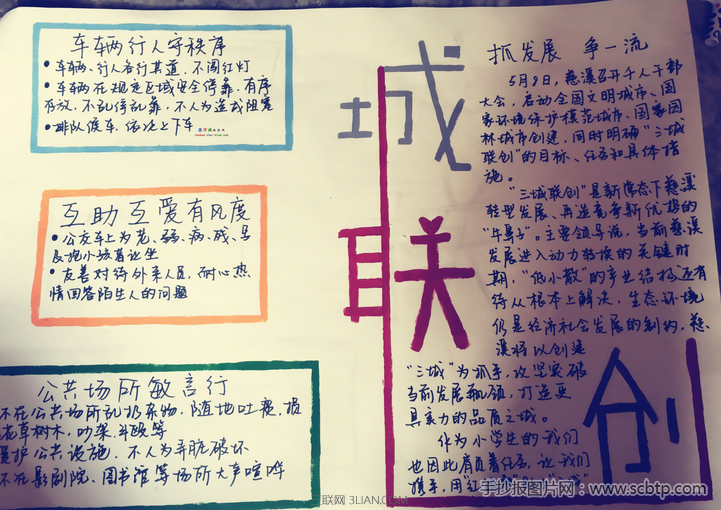 车辆行人守秩序
• 车辆、行人各行其道，不闯红灯
• 车辆在规定区域安全停靠，有序
存放，不乱停乱靠，不人为造成阻塞
• 排队候车，依次上下车
互助互爱有风度
• 公交车上为老、弱、病、残、孕
及抱小孩者让坐
• 友善对待外来人员，耐心热
情回答陌生人的问题
公共场所敏言行
不在公共场所乱扔杂物，随地吐痰，损
花草树木，吵架、斗殴等
爱护公共设施，不人为弄脏破坏
不在影剧院、图书馆等场所大声喧哗
城
联
创
抓发展 争一流
5月8日，慈溪召开千人干部
大会，启动全国文明城市、国
家环境保护模范城市、国家园
林城市创建，同时明确“三城
联创”的目标、任务和具体措
施。
“三城联创”是新常态下慈溪
转型发展、再造竞争新优势的
“牛鼻子”。主要领导说，当前慈溪
发展进入动力转换的关键时
期，“低小散”的产业结构还有
待从根本上解决，生态环境
仍是经济社会发展的制约，慈
溪将以创建
“三城”为抓手，攻坚突破
当前发展瓶颈，打造更
具实力的品质之城。
作为小学生的我们
也因此肩负着任务，让我们
携手，用
联网 3LIAN.COM
手抄报图片网：www.scbtp.com